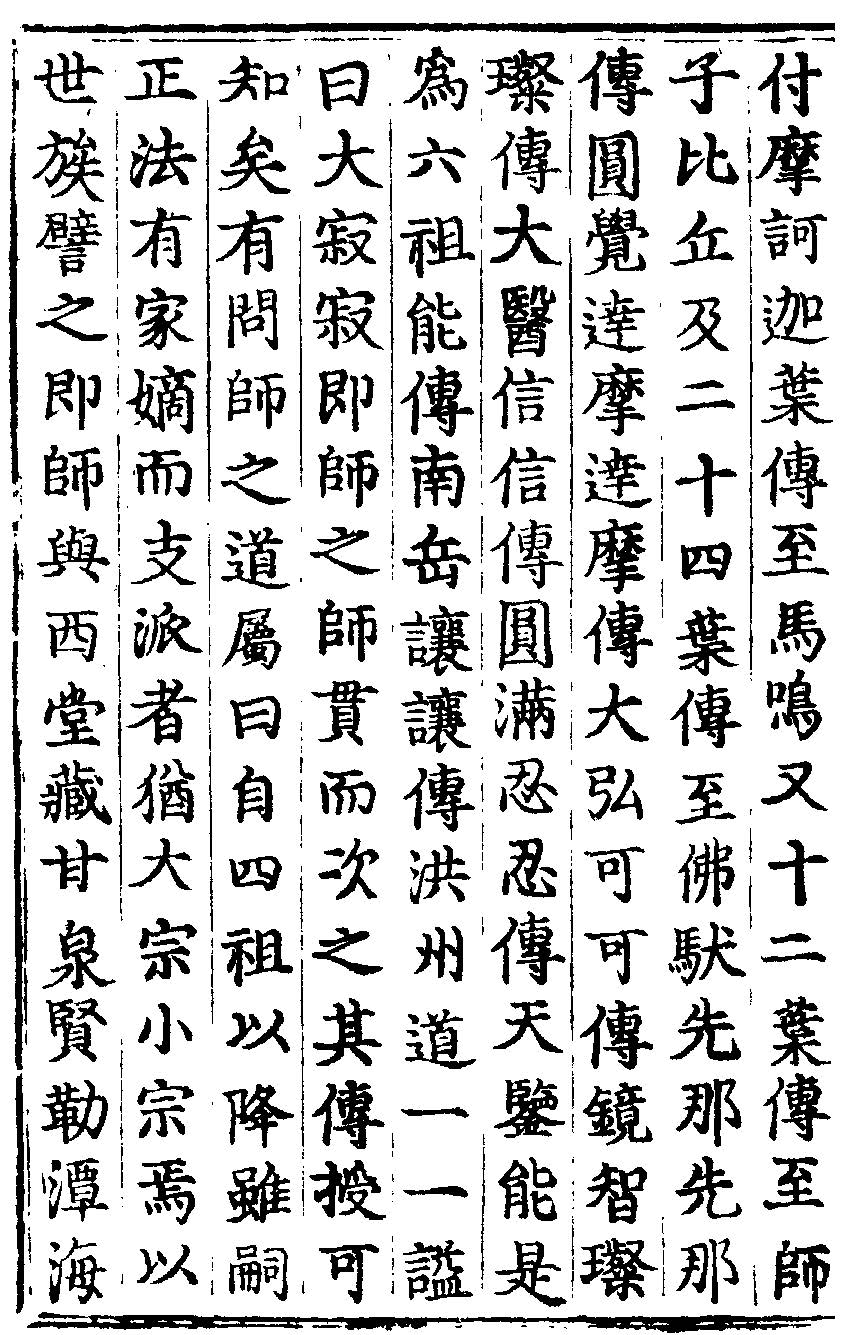 付摩訶迦葉傳至馬鳴又十二葉傳至師
子比丘及二十四葉傳至佛馱先那先那
傳圓覺達摩達摩傳大弘可可傳鏡智璨
璨傳大醫信信傳圓滿忍忍傳天鑒能是
爲六祖能傳南岳讓讓傳洪州道一一謚
曰大寂寂即師之師貫而次之其傳授可
知矣有問師之道屬曰自四祖以降雖嗣
正法有家嫡而支派者猶大宗小宗焉以
世族譬之即師與西堂藏甘泉賢勒潭海